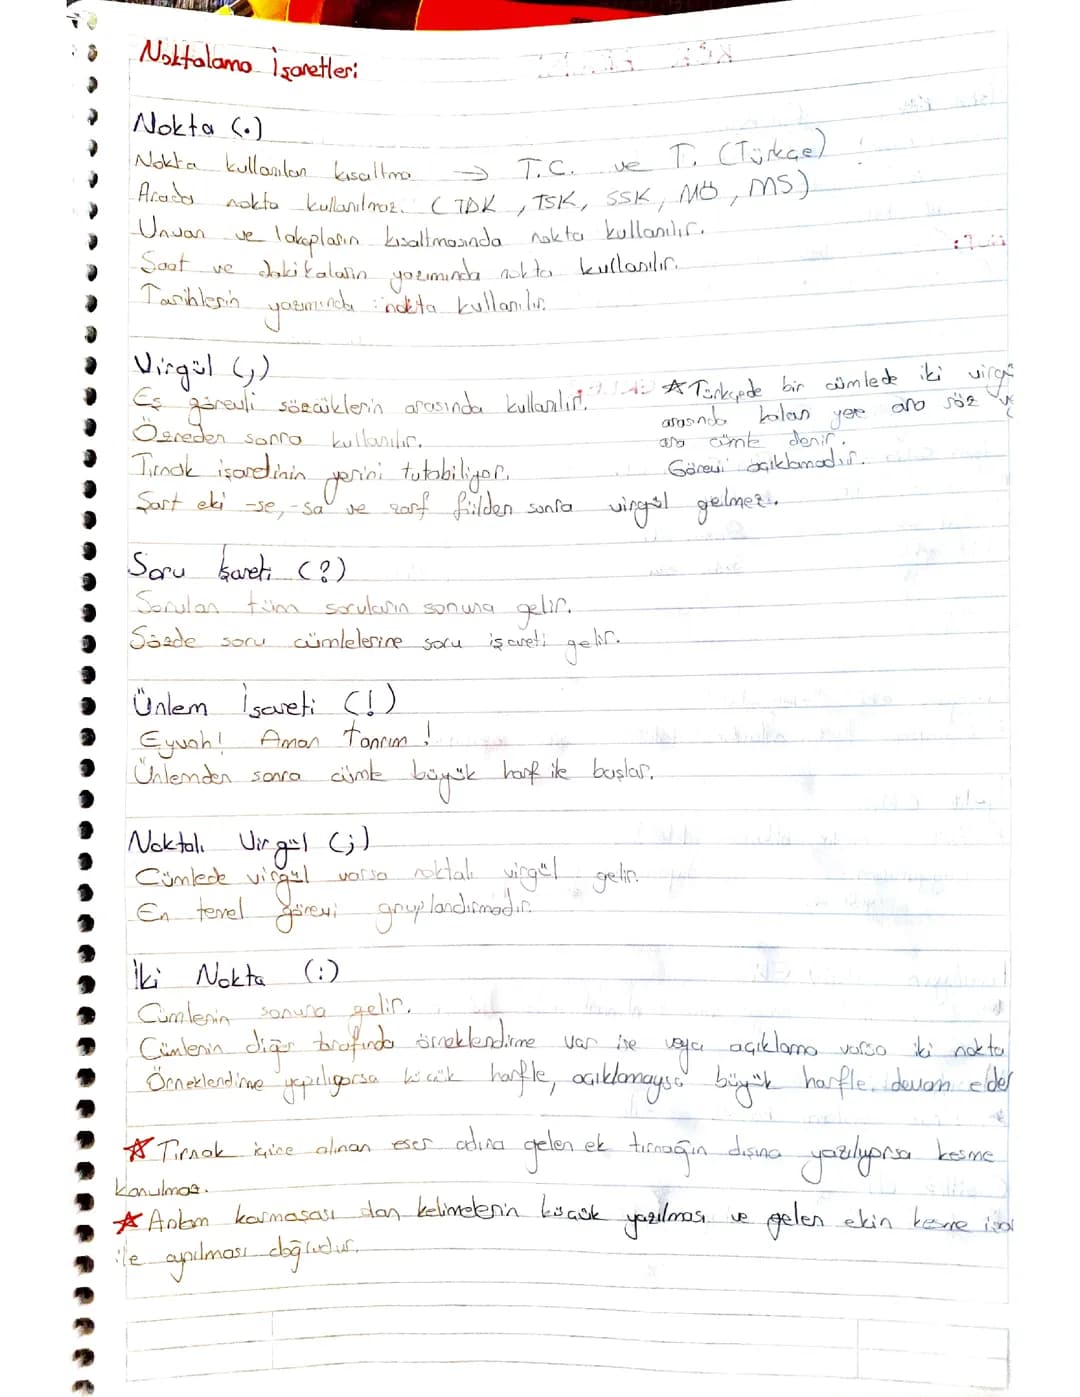 Noktalama İşaretleri
Nokta (.)
Nokta kullanılan kısaltma → T.C. ve T. (Türkçe)
Arada nokta kullanılmaz. (TDK, TSK, SSK, MÖ, MS)
Unvan ve lakapların kısaltmasında nokta kullanılır.
Saat ve dakikaların yazımında nokta kullanılır.
Tarihlerin yazımında nokta kullanılır.
Virgül (,)
Eş görevli sözcüklerin arasında kullanılır.
Özneden sonra kullanılır.
Tırnak işaretinin yerini tutabiliyor.
Şart eki -se, -sa ve zarf fiilden sonra virgül gelmez.
☆ Türkçede bir cümlede iki virgü
arasında kalan yere ara söz ve
ara cümle denir.
Görevi açıklamadır.
Soru İşareti (?)
Sorulan tüm soruların sonuna gelir.
Sözde soru cümlelerine soru işareti gelir.
Ünlem İşareti (!)
Eyvah! Aman Tanrım!
Ünlemden sonra cümle büyük harf ile başlar.
Noktalı Virgül (;)
Cümlede virgül varsa noktalı virgül gelir.
En temel görevi gruplandırmadır.
İki Nokta (:)
Cümlenin sonuna gelir.
Cümlenin diğer tarafında örneklendirme var ise veya açıklama varsa iki nokta
Örneklendirme yapılıyorsa küçük harfle, açıklamaysa büyük harfle devam eder
☆ Tırnak içine alınan eser adına gelen ek tırnağın dışına yazılıyorsa kesme
konulmaz.
☆ Anlam karmaşası olan kelimelerin küçük yazılması ve gelen ekin kesme
ile ayrılması doğrudur.